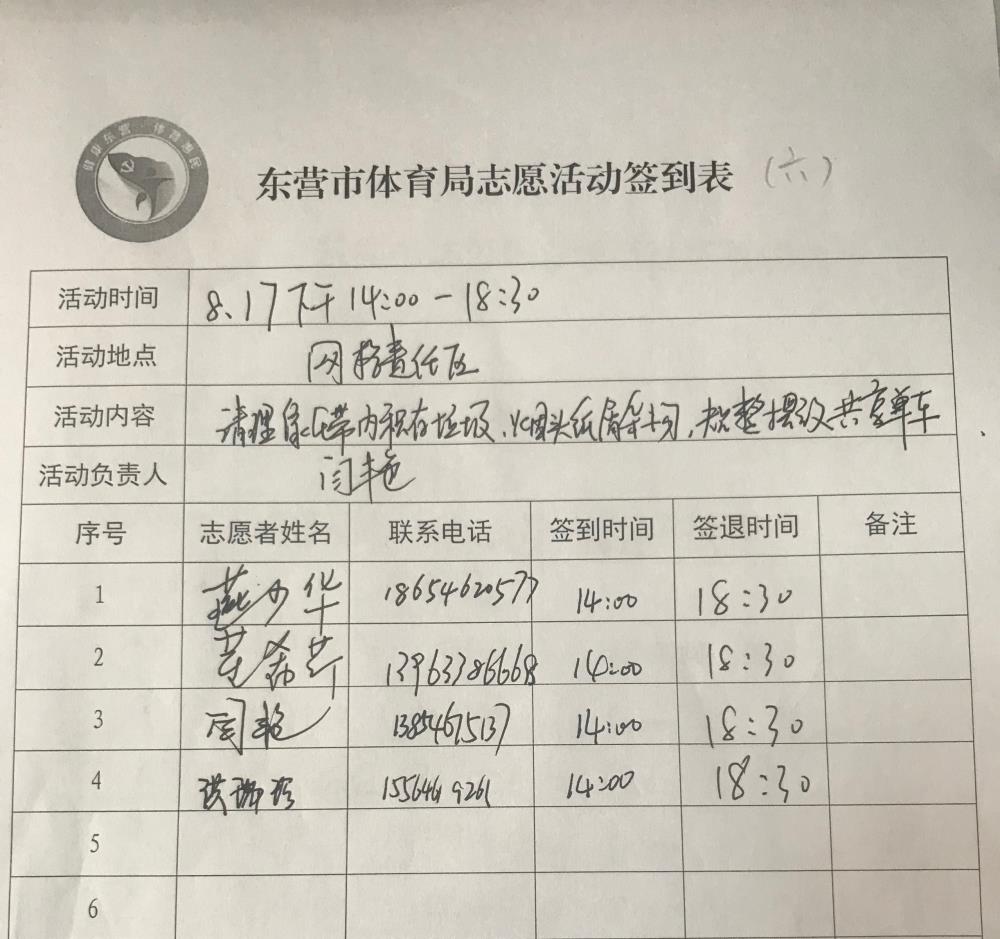 健康东营·体育惠民
东营市体育局志愿活动签到表 (六)
活动时间 8.17下午14:00-18:30
活动地点 网格责任区
活动内容 清理绿化带内积存垃圾、烟头纸屑等,规整摆放共享单车
活动负责人 闫艳
序号 志愿者姓名 联系电话 签到时间 签退时间 备注
1 燕少华 18654620577 14:00 18:30
2 13963386668 14:00 18:30
3 闫艳 13854675137 14:00 18:30
4 14:00 18:30
5
6